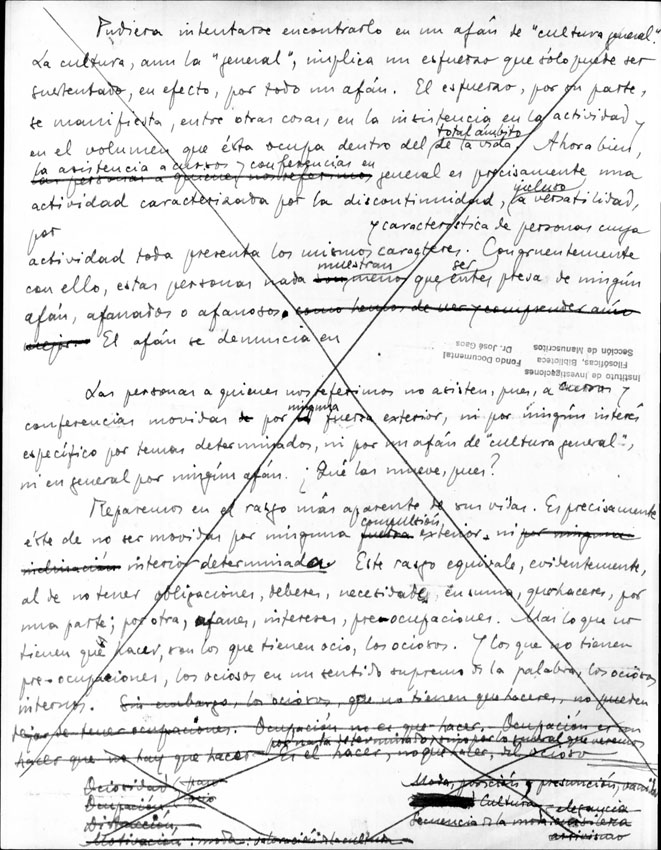 Pudiera intentarse encontrarlo en un afán de "cultura general".
La cultura, aun la "general", implica un esfuerzo que sólo puede ser
sustentado, en efecto, por todo un afán. El esfuerzo, por su parte,
se manifiesta, entre otras cosas, en la insistencia en la actividad y
en el volumen que ésta ocupa dentro del total ámbito de la vida. Ahora bien,
la asistencia a cursos y conferencias en
las personas a quienes nos referimos general es precisamente una
actividad caracterizada por la discontinuidad, incluso la versatilidad,
por y característica de personas cuya
actividad toda presenta los mismos caracteres. Congruentemente
con ello, estas personas nada muestran menos que ser entes presa de ningún
afán, afanados o afanosos. como hemos de ver y comprender aún
mejor. El afán se denuncia en
Instituto de Investigaciones
Filosóficas, Biblioteca
Sección de Manuscritos
Fondo Documental
Dr. José Gaos
Las personas a quienes nos referimos no asisten, pues, a cursos y
conferencias movidas por ninguna fuerza exterior, ni por ningún interés
específico por temas determinados, ni por un afán de "cultura general",
ni en general por ningún afán. ¿Qué las mueve, pues?
Reparemos en el rasgo más aparente de sus vidas. Es precisamente
éste de no ser movidas por ninguna compulsión fuerza exterior, ni por ninguna
inclinación interior determinada. Este rasgo equivale, evidentemente,
al de no tener obligaciones, deberes, necesidades, en suma, quehaceres, por
una parte; por otra, afanes, intereses, pre-ocupaciones. Mas lo que no
tienen que hacer, son los que tienen ocio, los ociosos. Y los que no tienen
pre-ocupaciones, los ociosos en un sentido supremo de la palabra, los ociosos
internos. Sin embargo, los ociosos, que no tienen quehaceres, no pueden
dejar de tener ocupaciones. Ocupación no es que hacer. Ocupación es un
por nada determinado sino por lo general que veremos
hacer que no hay que hacer. Es el hacer, no quehacer, del ocioso
Ociosidad, para
Ocupación ocio
Distracción,
Motivación: moda: valoración de la cultura
Moda, posición y presunción,
Cultura elegancia
Semencia de la moda
activismo